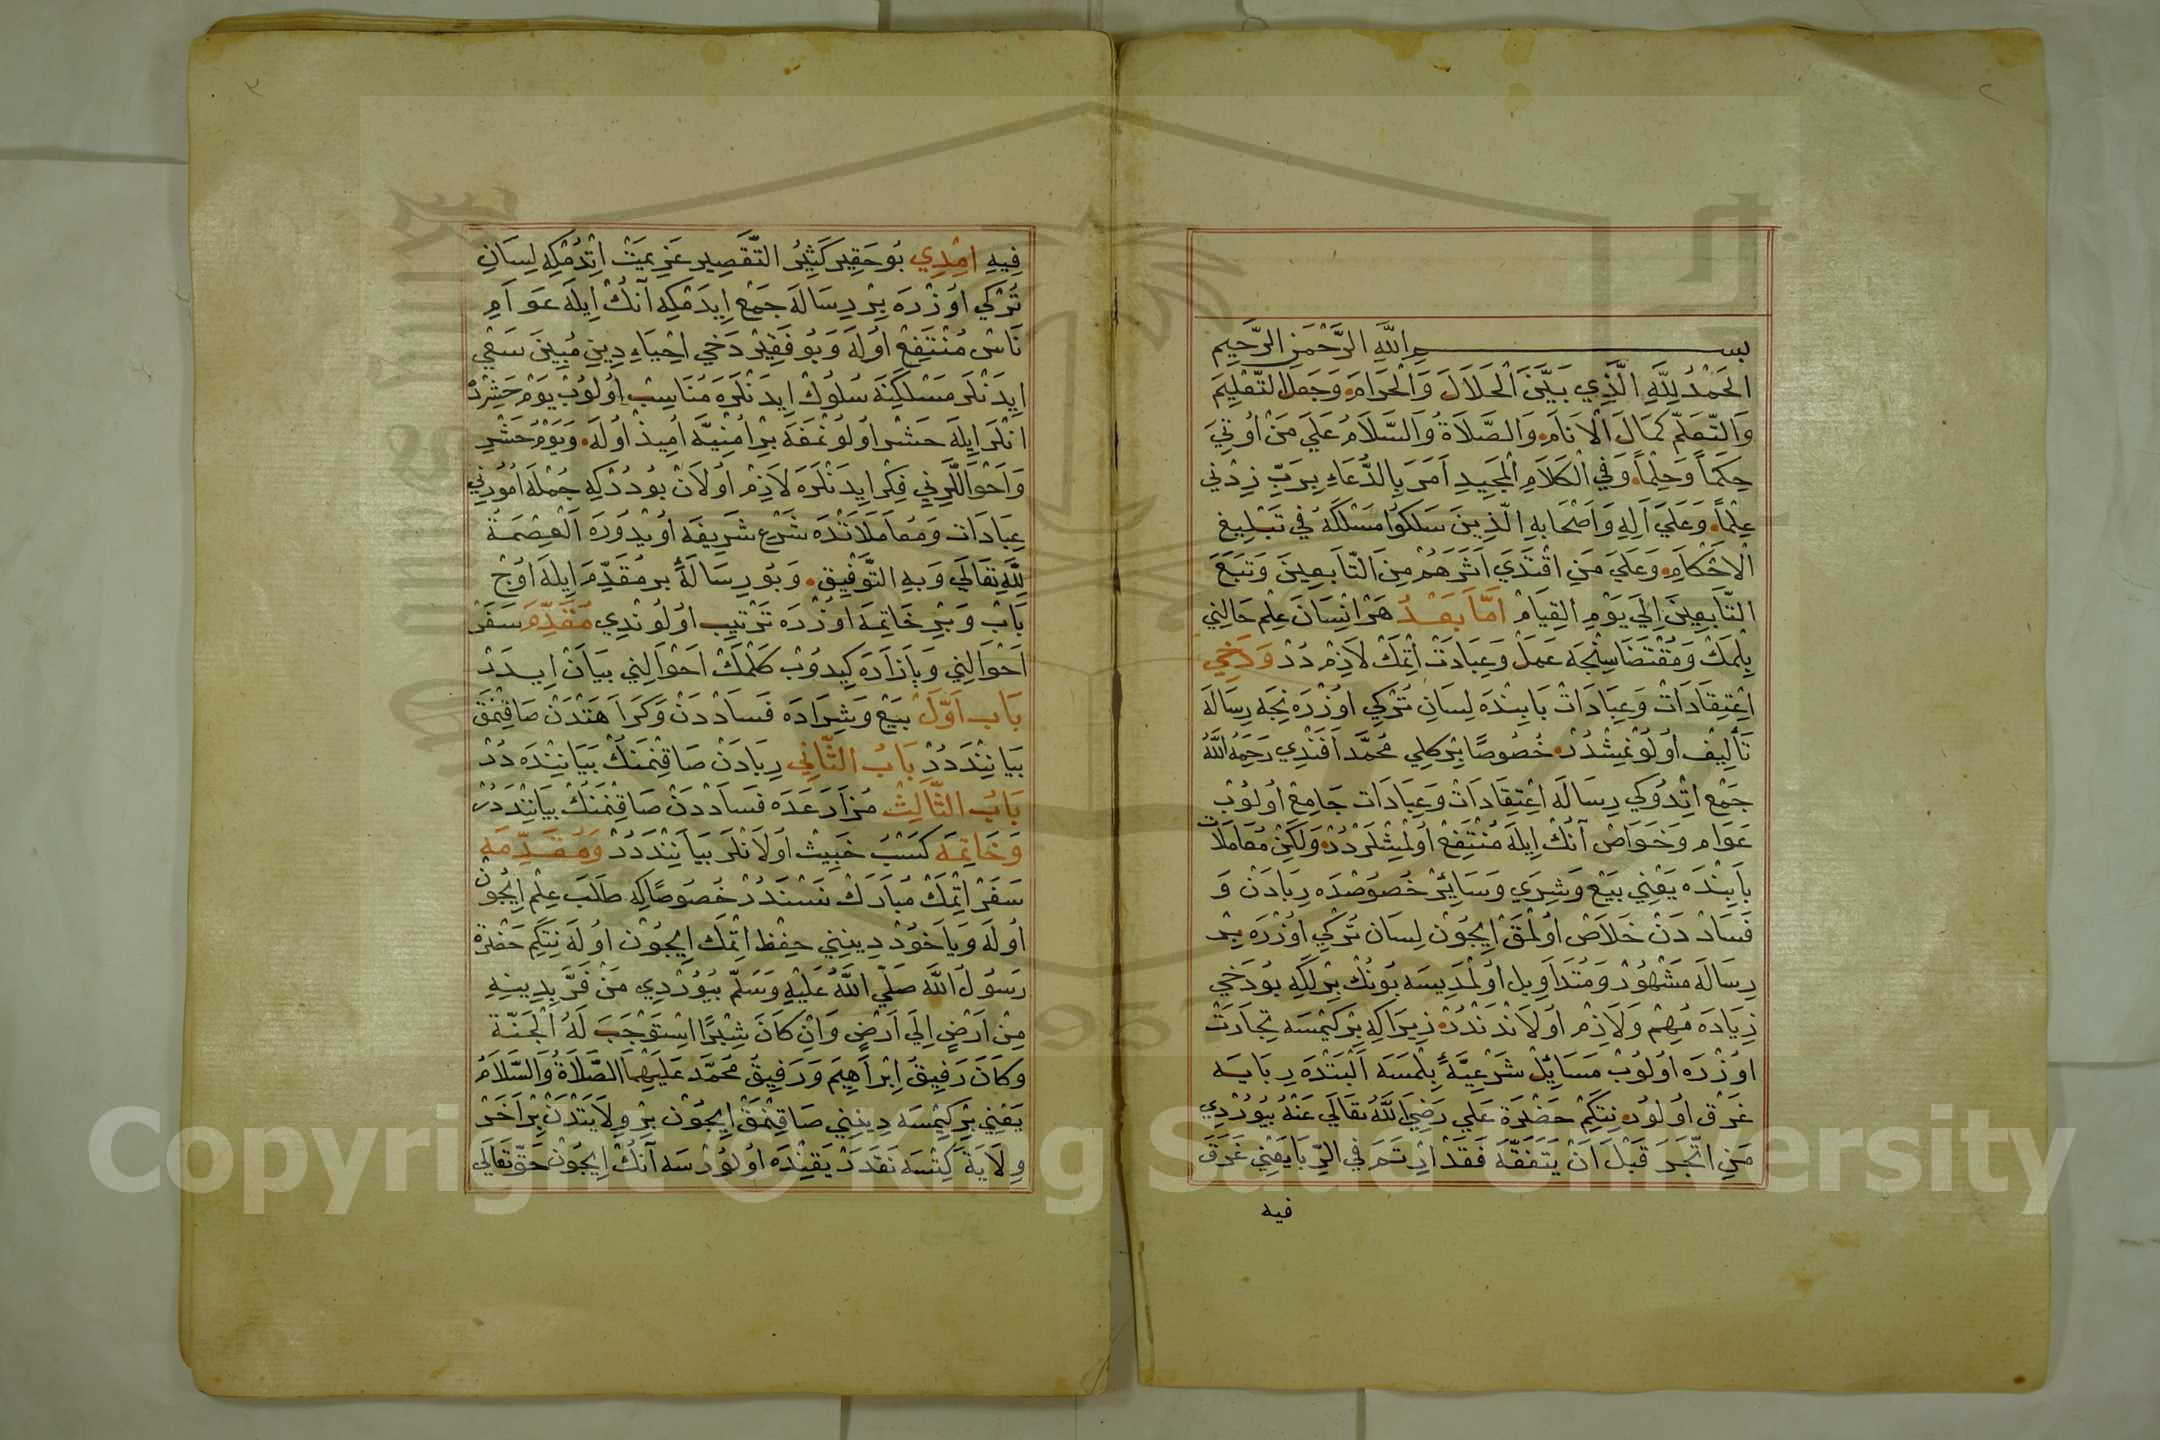 بسم الله الرحمن الرحيم
الحَمْدُ لِلَّهِ الَّذِي بَيَّنَ الْحَلَالَ وَالْحَرَامَ وَجَعَلَ التَّعْلِيمَ
وَالتَّعَلُّمَ كَمَالَ الْاَنَامِ وَالصَّلَاةُ وَالسَّلَامُ عَلَي مَنْ اُوتِيَ
حِكَمًا وَحِلْمًا وَفِي الْكَلَامِ الْمَجِيدِ اَمَرَ بِالدُّعَاءِ بِرَبِّ زِدْنِي
عِلْمًا وَعَلَي آلِهِ وَاَصْحَابِهِ الَّذِينَ سَلَكُوا مَسْلَكَهُ فِي تَبْلِيغِ
الْاَحْكَامِ وَعَلَي مَنِ اقْتَدَي اَثَرَهُمْ مِنَ التَّابِعِينَ وَتَبَعَ
التَّابِعِينَ اِلَي يَوْمِ القِيَامْ اَمَّا بَعْدُ هَرْ انْسَانَ عِلْم حَالِنِي
بِلْمَكْ وَمُقْتَضَاسِنْجَه عَمَلْ وَعِبَادَتْ اِتْمَكْ لَازِمْ دُرْ وَدَخِي
اِعْتِقَادَاتْ وَعِبَادَاتْ بَابِنْدَه لِسَانِ تُرْكِي اوُزْرَه نِجَه رِسَالَه
تَأْلِيفْ اوُلُونْمِشْدُرْ خُصُوصًا بِرْكِلِي مُحَمَّد اَفَنْدِي رَحِمَهُ اللَّهُ
جَمْع اِتْدُوكِي رِسَالَه اعْتِقَادَاتْ وَعِبَادَات جَامِعْ اوُلُوبْ
عَوَام وَخَوَاصْ آنُكْ اِيلَه مُنْتَفِعْ اوُلْمِشْلَرْدُرْ وَلَكِنْ مُعَامَلَاتْ
بَابِنْدَه يَعْنِي بَيْع وَشِرَي وَسَائِرْ خُصُوصْدَه رِبَادَنْ وَ
فَسَادْ دَنْ خَلَاصْ اوُلْمَقْ اِيچُونْ لِسَان تُرْكِي اوُزْرَه بِرْ
رِسَالَه مَشْهُورْ وَمُتَدَاوِل اوُلْمَدِيسَه بُونُكْ بِرْلَكِه بُودَخِي
زِيَادَه مُهِمْ وَلَازِمْ اوُلَانْدَنْدُرْ زِيرَاكِه بِرْ كِيْمَسَه تِجَارَتْ
اوُزْرَه اوُلُوبْ مَسَائِلْ شَرْعِيَّةِ بِلْمَسَه اَلْبَتَّدَه رِبَايَه
غَرْق اوُلُورْ نِتَكِمْ حَضْرَة عَلِي رَضِيَ اللَّهُ تَعَالَي عَنْهُ بُيُوُرْدِي
مَنِ اتَّجَرَ قَبْلَ اَنْ يَتَفَقَّهَ فَقَدْ ارْتَحَمَ فِي الرِّبَا يَعْنِي غَرَقَ
فيه
فِيهِ امْدِي بُو حَقِير كَثِيرُ التَّقْصِير عَزِيمَتْ اِتْدُمْكِه لِسَانِ
تُرْكِي اوُزْرَه بِرْ رِسَالَه جَمْع اِيدَمْكِه آنُكْ اِيلَه عَوَامِ
نَاسْ مُنْتَفِعْ اوُلَه وَبُو فَقِيرْ دَخِي اِحْيَاءِ دِينِ مُبِينَ سَعْي
اِيدَنْلَر مَسْلَكِنَه سُلُوكْ اِيدَنْلَرَه مُنَاسِبْ اوُلُوبْ يَوْم حَشِرْدَه
انْلَرْ اِيلَه حَشْر اوُلُونْمَغَه بِرْ اُمْنِيَّه اُمِيذْ اوُلَه وَيَوْم حَشْرِ
وَاَحْوَالَرِنِي فِكْر اِيدَنْلَرَه لَازِمْ اوُلَانْ بُودُرْكِه جُمْلَه اُمُورِنِي
عِبَادَات وَمُعَامَلَاتَدَه شَرْعِ شَرِيفَه اوُيْدُورَه اَلْعِصْمَةُ
لِلَّهِ تَعَالَي وَبِهِ التَّوْفِيقِ وَبُو رِسَالَه بر مُقَدِّمَه اِيلَه اوُچْ
بَابْ وَبِرْ خَاتِمَه اوُزْرَه تَرْتِيب اوُلُونْدِي مُقَدِّمَه سَفَرْ
اَحْوَالِنِي وَبَازَارَه كِيدوُبْ كَلْمَكْ اَحْوَالِنِي بَيَانْ اِيدَرْ
بَاب اَوَّلْ بَيْع وَشِرَادَه فَسَادْدَنْ وَكَرَاهَتْدَنْ صَاقِنْمَقْ
بَيَانِنْدَه دُرْ بَابُ الثَّانِي رِبَادَنْ صَاقِنْمَنُكْ بَيَانِنْدَه دُرْ
بَابُ الثَّالِثْ مُزَارَعَدَه فَسَادْدَنْ صَاقِنْمَنُكْ بَيَانِنْدَه دُرْ
وَخَاتِمَه كَسْبُ خَبِيثْ اوُلَانْلَرْ بَيَانِنْدَه دُرْ وَمُقَدِّمَه
سَفَرْ اِتْمَكْ مُبَارَكْ نَسْنَه دُرْ خُصُوصًا كِه طَلَبَ عِلْم اِيچُونْ
اوُلَه وَيَاخُودْ دِينِنِي حِفِظ اِتْمَكْ اِيچُونْ اوُلَه نِتَكِمْ حَضْرَة
رَسُولُ اللَّه صَلَّي اللَّهُ عَلَيْهِ وَسَلَّمْ بُيُوُرْدِي مَنْ فَرَّ بِدِينِهِ
مِنْ اَرْضٍ اِلَي اَرْضٍ وَاِنْ كَانَ شِبْرًا اسْتَوْجَبَ لَهُ الْجَنَّةَ
وَكَانَ رَفِيقُ اِبْرَاهِيمَ وَرَفِيقُ مُحَمَّد عَلَيْهِمَا الصَّلَاةُ وَالسَّلَامُ
يَعْنِي بِرْ كِيْمَسَه دِينِنِي صَاقِنْمَقْ اِيچُونْ بِرْ وِلَايَتْدَنْ بِرْ آخَرْ
وِلَايَة كِتْسَه نَقَدَرْ يَقِنْدَه اوُلُورْسَه آنُكْ اِيچُونْ حَقّ تَعَالَي